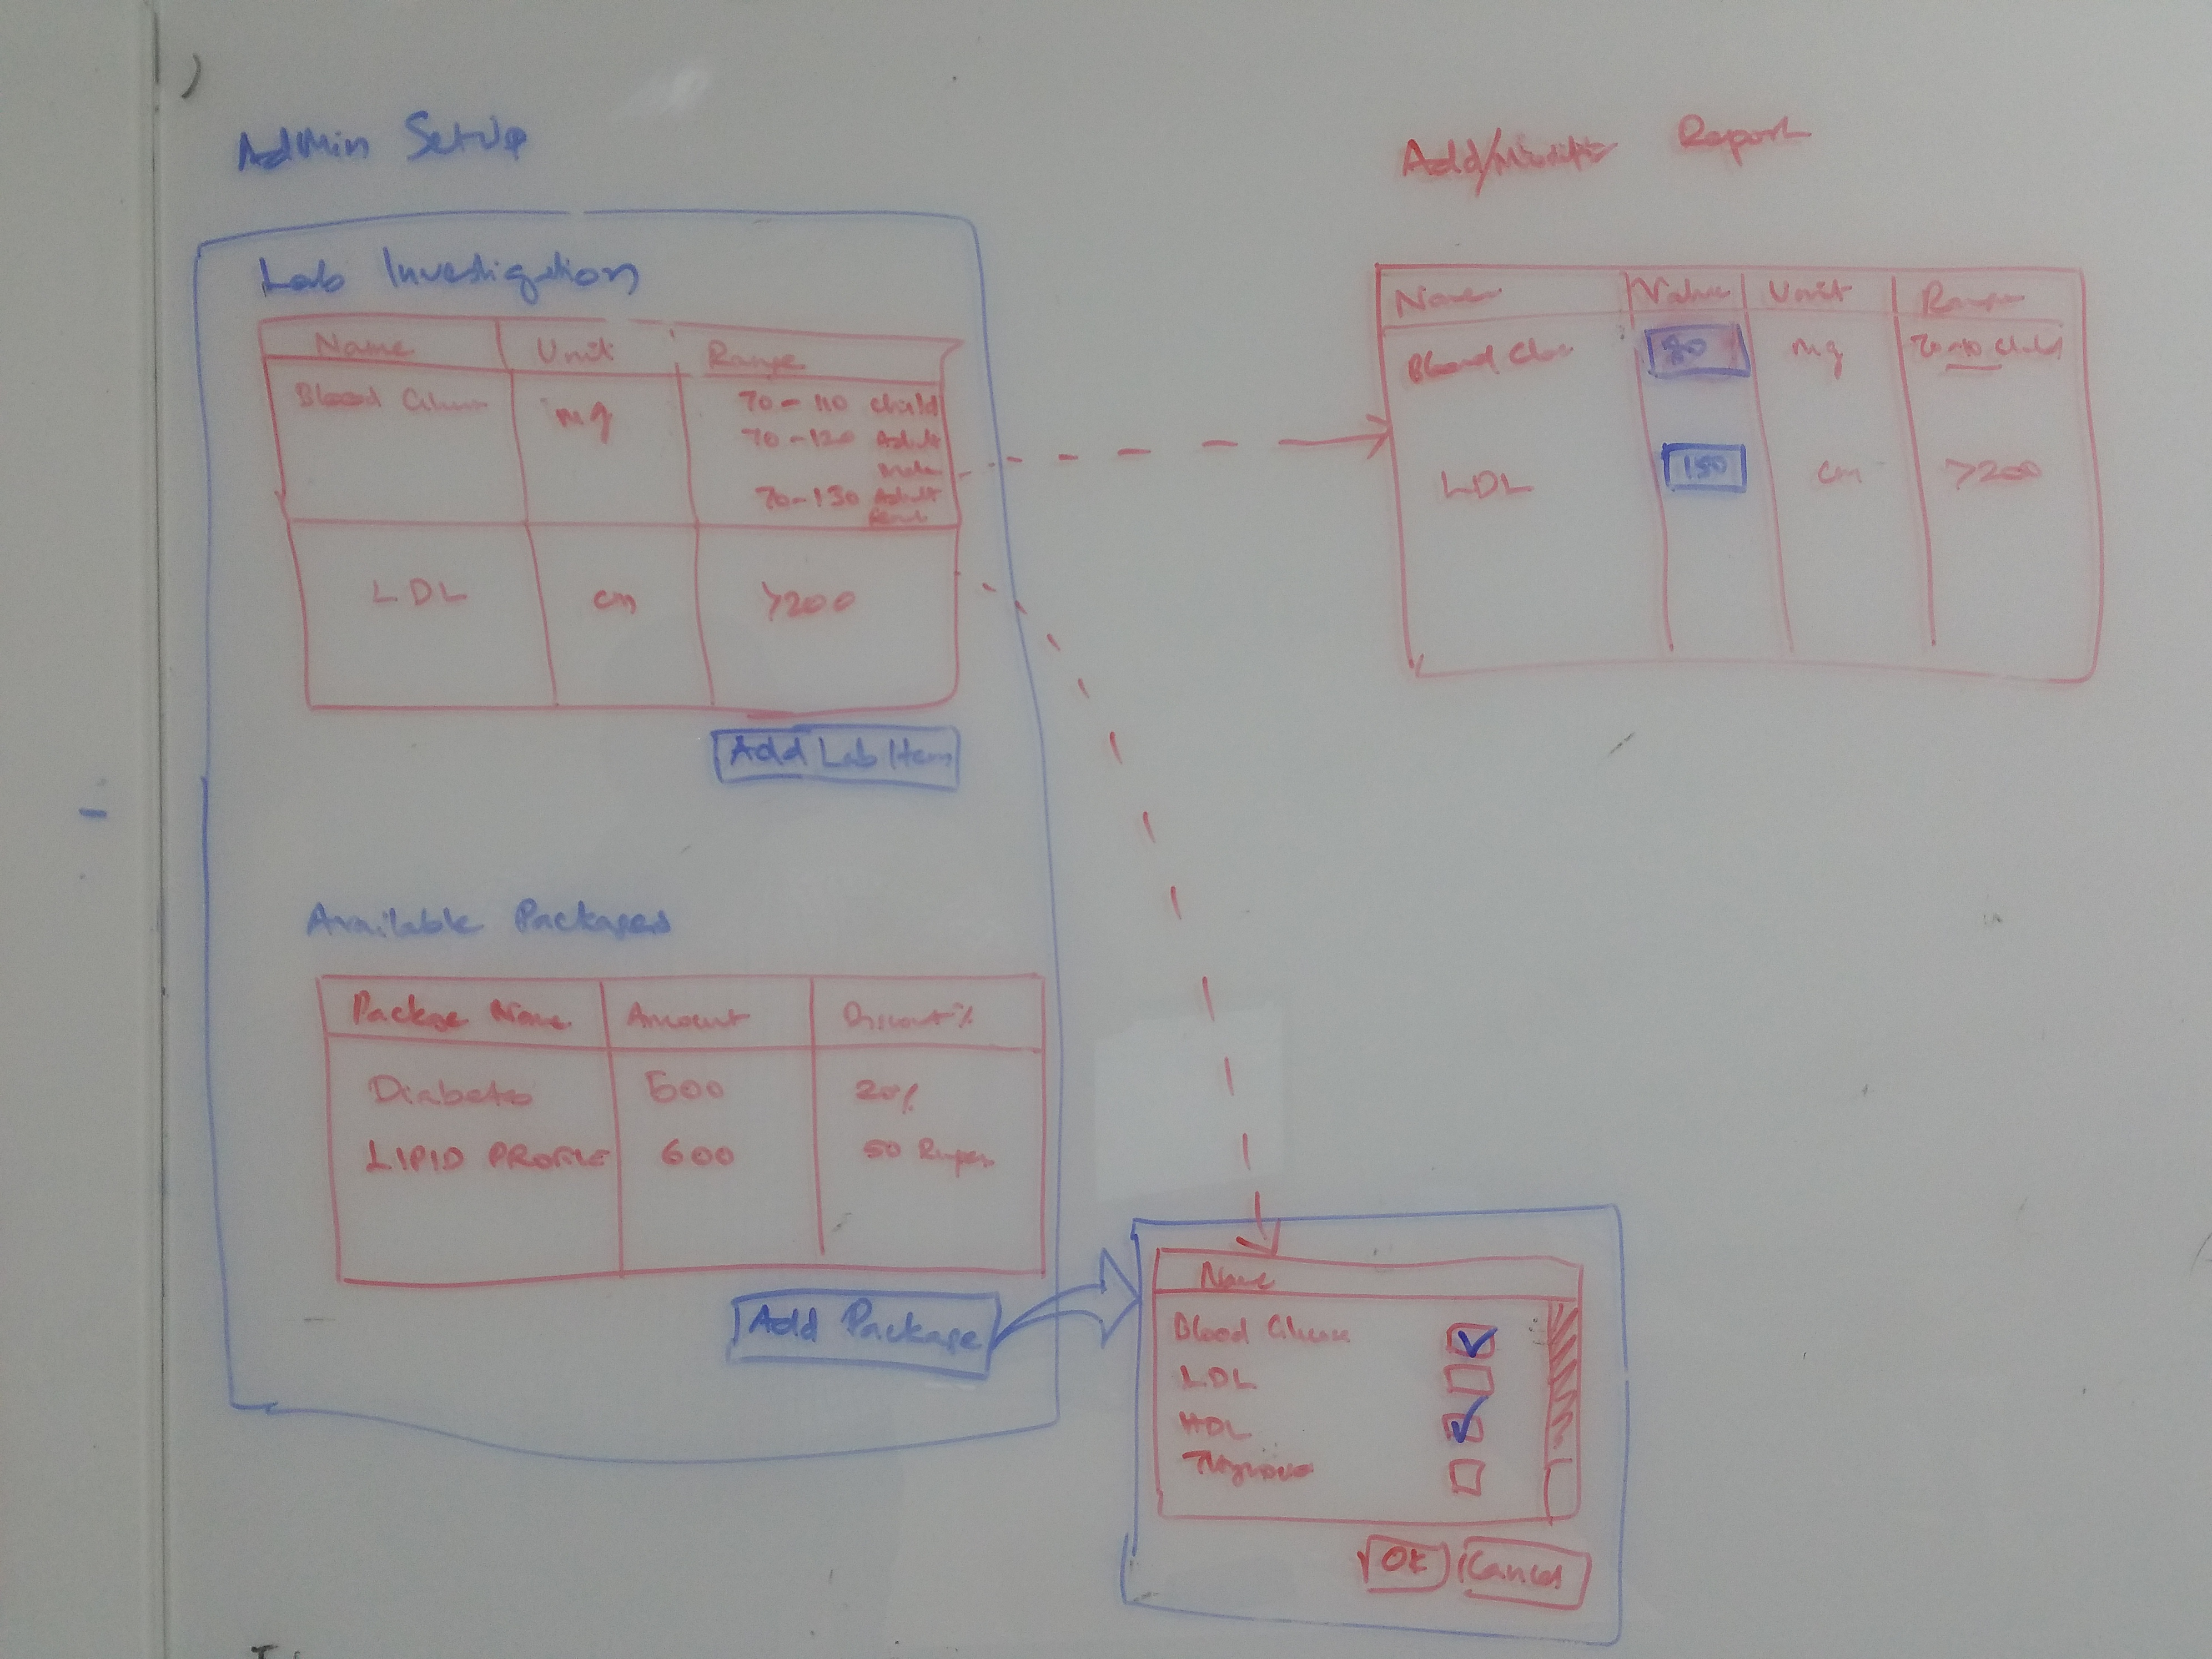 Admin Setup
Lab Investigation
Name Unit Range
Blood mg 70-110 Child
70-120 Adult
Male
70-130 Adult
LDL cm >200
Add Lab Item
Available Packages
Package Name Amount Discount%
Diabetes 500 20%
LIPID PROFILE 600 50
Add Package
Add/ Report
Name Value Unit Range
Blood 80 mg Child
LDL 150 cm >200
Name
Blood
LDL
HDL
OK Cancel